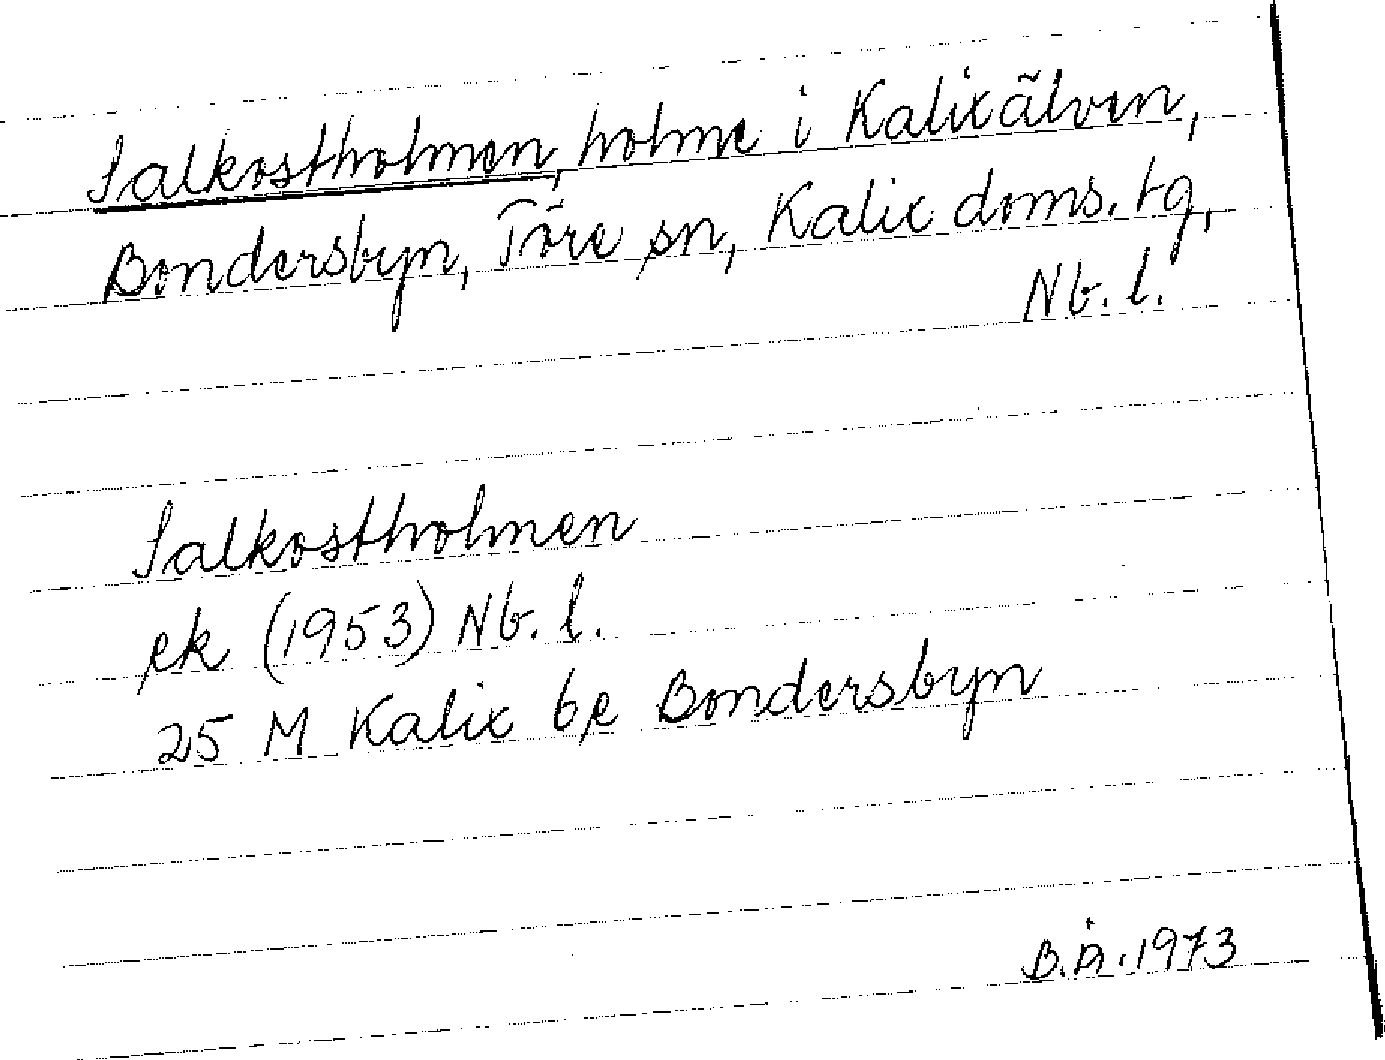 Salkostholmen, holme i Kalixälven,
Bondersbyn, Töre sn, Kalix doms. tg,
Nb. l.
Salkostholmen
ek (1953) Nb. l.
25 M Kalix 6e Bondersbyn
B.Å. 1973